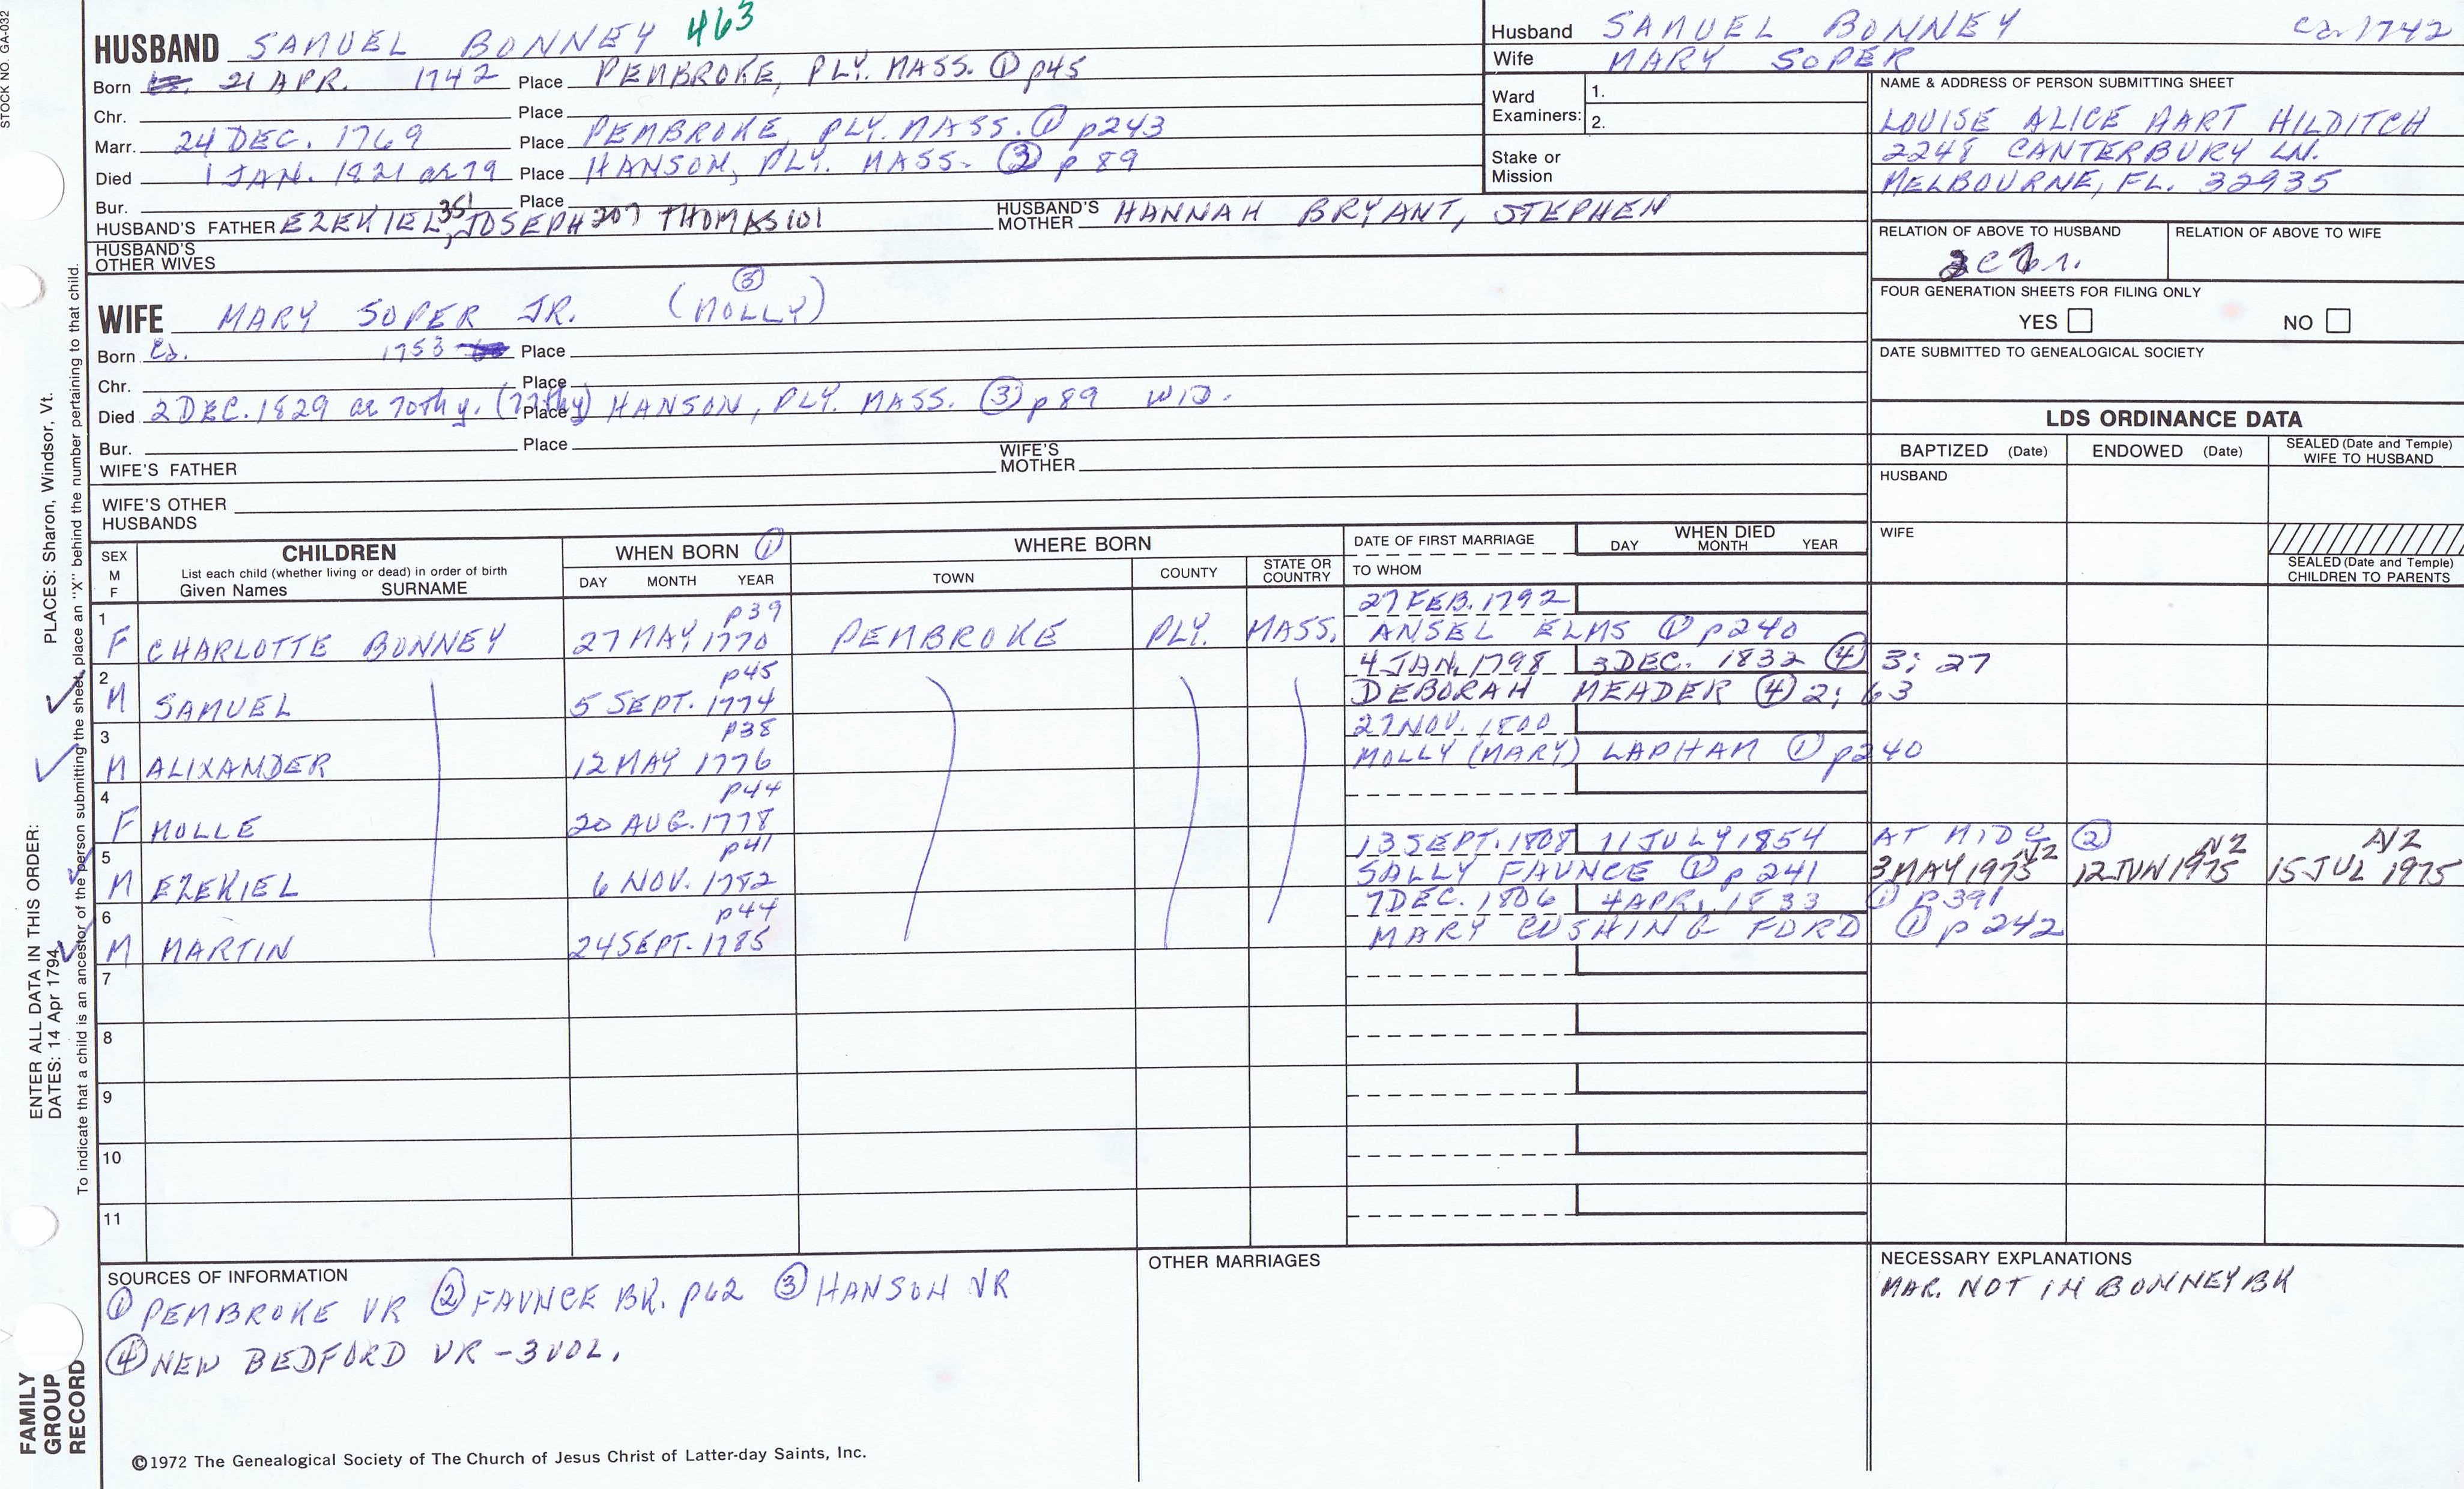 STOCK NO. GA-032
HUSBAND SAMUEL BONNEY 463
Born 21 APR. 1742 Place PEMBROKE, PLY. MASS. ① p45
Chr. Place
Marr. 24 DEC. 1769 Place PEMBROKE, PLY. MASS. ① p243
Died 1 JAN. 1821 ae 79 Place HANSON, PLY. MASS. ③ p 89
Bur. Place
HUSBAND'S FATHER EZEKIEL 351, JOSEPH 207 THOMAS 101 HUSBAND'S MOTHER HANNAH BRYANT, STEPHEN
HUSBAND'S OTHER WIVES
WIFE MARY SOPER JR. (MOLLY) ③
Born Ca. 1753 Place
Chr. Place
Died 2 DEC. 1829 ae 70th y. (77thy) Place HANSON, PLY. MASS. ③ p89 WID.
Bur. Place
WIFE'S FATHER WIFE'S MOTHER
WIFE'S OTHER HUSBANDS
Husband SAMUEL BONNEY Ca 1742
Wife MARY SOPER
Ward Examiners: 1.
2.
Stake or Mission
NAME & ADDRESS OF PERSON SUBMITTING SHEET
LOUISE ALICE HART HILDITCH
2248 CANTERBURY LN.
MELBOURNE, FL. 32935
RELATION OF ABOVE TO HUSBAND RELATION OF ABOVE TO WIFE
FOUR GENERATION SHEETS FOR FILING ONLY
YES NO
DATE SUBMITTED TO GENEALOGICAL SOCIETY
LDS ORDINANCE DATA
BAPTIZED (Date) ENDOWED (Date) SEALED (Date and Temple) WIFE TO HUSBAND
HUSBAND
WIFE
SEALED (Date and Temple) CHILDREN TO PARENTS
SEX M F CHILDREN List each child (whether living or dead) in order of birth Given Names SURNAME WHEN BORN ① DAY MONTH YEAR WHERE BORN TOWN COUNTY STATE OR COUNTRY DATE OF FIRST MARRIAGE TO WHOM WHEN DIED DAY MONTH YEAR
1 p39 27 FEB. 1792
F CHARLOTTE BONNEY 27 MAY 1770 PEMBROKE PLY. MASS. ANSEL ELMS ① p240
2 p45 4 JAN. 1798 3 DEC. 1832 ④ 3; 27
M SAMUEL 5 SEPT. 1774 DEBORAH MEADER ④ 2; 63
3 p38 27 NOV. 1800
M ALIXANDER 12 MAY 1776 MOLLY (MARY) LAPHAM ① p240
4 p44
F MOLLE 20 AUG. 1778
5 p41 13 SEPT. 1808 11 JULY 1854 AT MIDØ ② NZ NZ NZ
M EZEKIEL 6 NOV. 1782 SALLY FAUNCE ① p 241 3 MAY 1975 12 JUN 1975 15 JUL 1975
6 p44 7 DEC. 1806 4 APR. 1833 ① p391
M MARTIN 24 SEPT. 1785 MARY CUSHING FORD ① p 242
7
8
9
10
11
SOURCES OF INFORMATION
① PEMBROKE VR ② FAUNCE BK. p62 ③ HANSON VR
④ NEW BEDFORD VR - 3 VOL.
OTHER MARRIAGES
NECESSARY EXPLANATIONS
MAR. NOT IN BONNEY BK
©1972 The Genealogical Society of The Church of Jesus Christ of Latter-day Saints, Inc.
FAMILY GROUP RECORD
ENTER ALL DATA IN THIS ORDER:
DATES: 14 Apr 1794
PLACES: Sharon, Windsor, Vt.
To indicate that a child is an ancestor of the person submitting the sheet, place an "X" behind the number pertaining to that child.